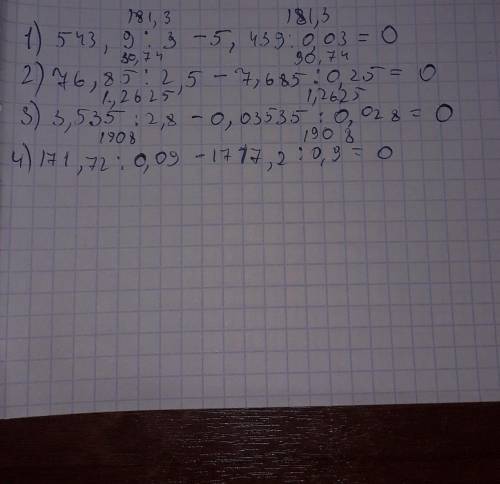 181,3 181,3
1) 543,9:3-5,439:0,03=0
30,74 30,74
2) 76,85:2,5-7,685:0,25=0
1,2625 1,2625
3) 3,535:2,8-0,03535:0,028=0
1908 1908
4) 171,72:0,09-1717,2:0,9=0